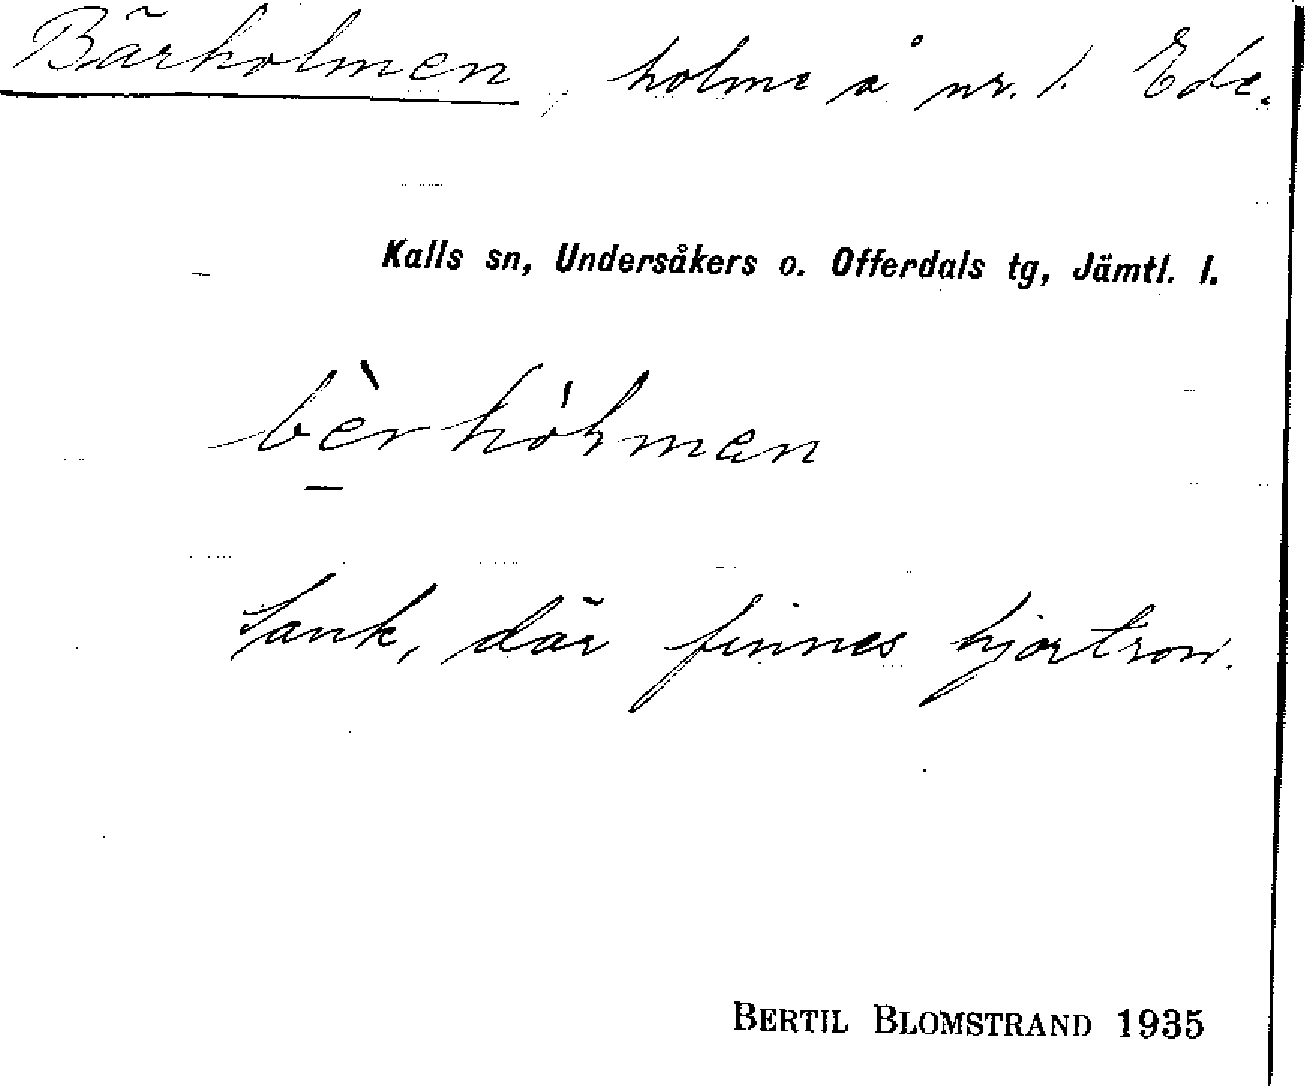 Bärholmen, holme å nr. 1. Ede.
Kalls sn, Undersåkers o. Offerdals tg, Jämtl. l.
bèrhóḷmen
Sank, där finnes hjortron.
BERTIL BLOMSTRAND 1935